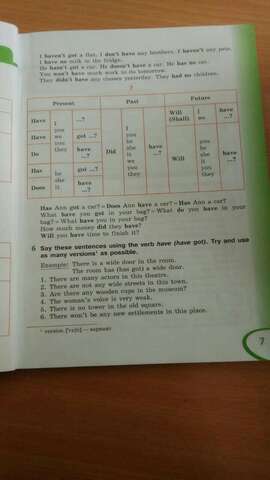 I haven't got a flat. I don't have any brothers. I haven't any pets.
I have no milk in the fridge.
He hasn't got a car. He doesn't have a car. He has no car.
You won't have much work to do tomorrow.
They didn't have any classes yesterday. They had no children.
?
Present Past Future
Have I ...? Will (Shall) I we have ...?
Have you we they got ...? Did I you he she it we you they have ...?
Do have ...? Will you he she it they have ...?
Has he she it got ...?
Does have ...?
Has Ann got a car? = Does Ann have a car? = Has Ann a car?
What have you got in your bag? = What do you have in your
bag? = What have you in your bag?
How much money did they have?
Will you have time to finish it?
6 Say these sentences using the verb have (have got). Try and use
as many versions* as possible.
Example: There is a wide door in the room.
The room has (has got) a wide door.
1. There are many actors in this theatre.
2. There are not any wide streets in this town.
3. Are there any wooden cups in the museum?
4. The woman's voice is very weak.
5. There is no tower in the old square.
6. There won't be any new settlements in this place.
* version — вариант
7